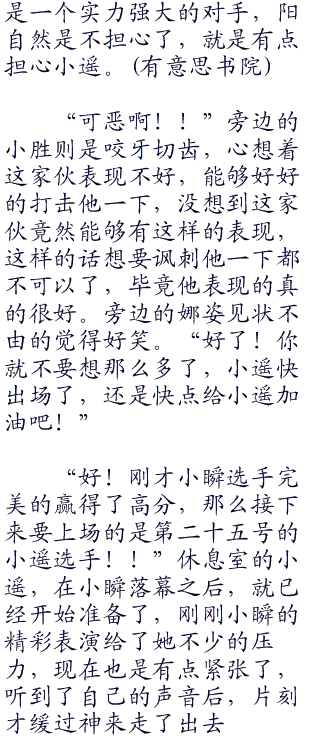 是一个实力强大的对手，阳
自然是不担心了，就是有点
担心小遥。(有意思书院)
“可恶啊！！”旁边的
小胜则是咬牙切齿，心想着
这家伙表现不好，能够好好
的打击他一下，没想到这家
伙竟然能够有这样的表现，
这样的话想要讽刺他一下都
不可以了，毕竟他表现的真
的很好。旁边的娜姿见状不
由的觉得好笑。“好了！你
就不要想那么多了，小遥快
出场了，还是快点给小遥加
油吧！”
“好！刚才小瞬选手完
美的赢得了高分，那么接下
来要上场的是第二十五号的
小遥选手！！”休息室的小
遥，在小瞬落幕之后，就已
经开始准备了，刚刚小瞬的
精彩表演给了她不少的压
力，现在也是有点紧张了，
听到了自己的声音后，片刻
才缓过神来走了出去